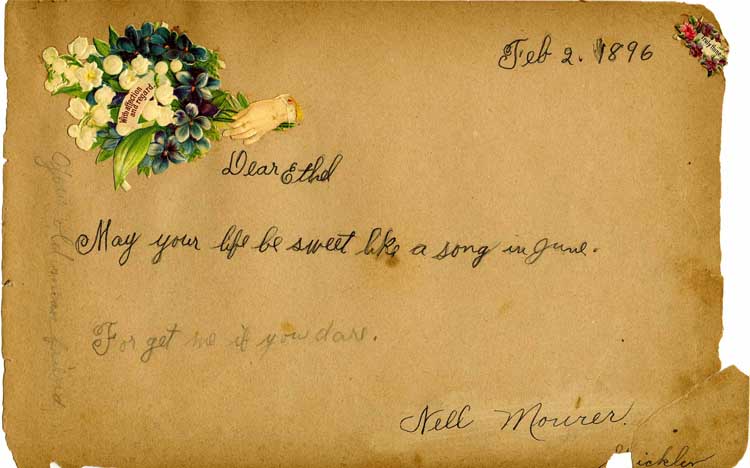 Feb 2. 1896
With affection
and regard
Dear Ethel
May your life be sweet like a song in June.
For get me if you dare.
Nell Mourer.
Your old near friend